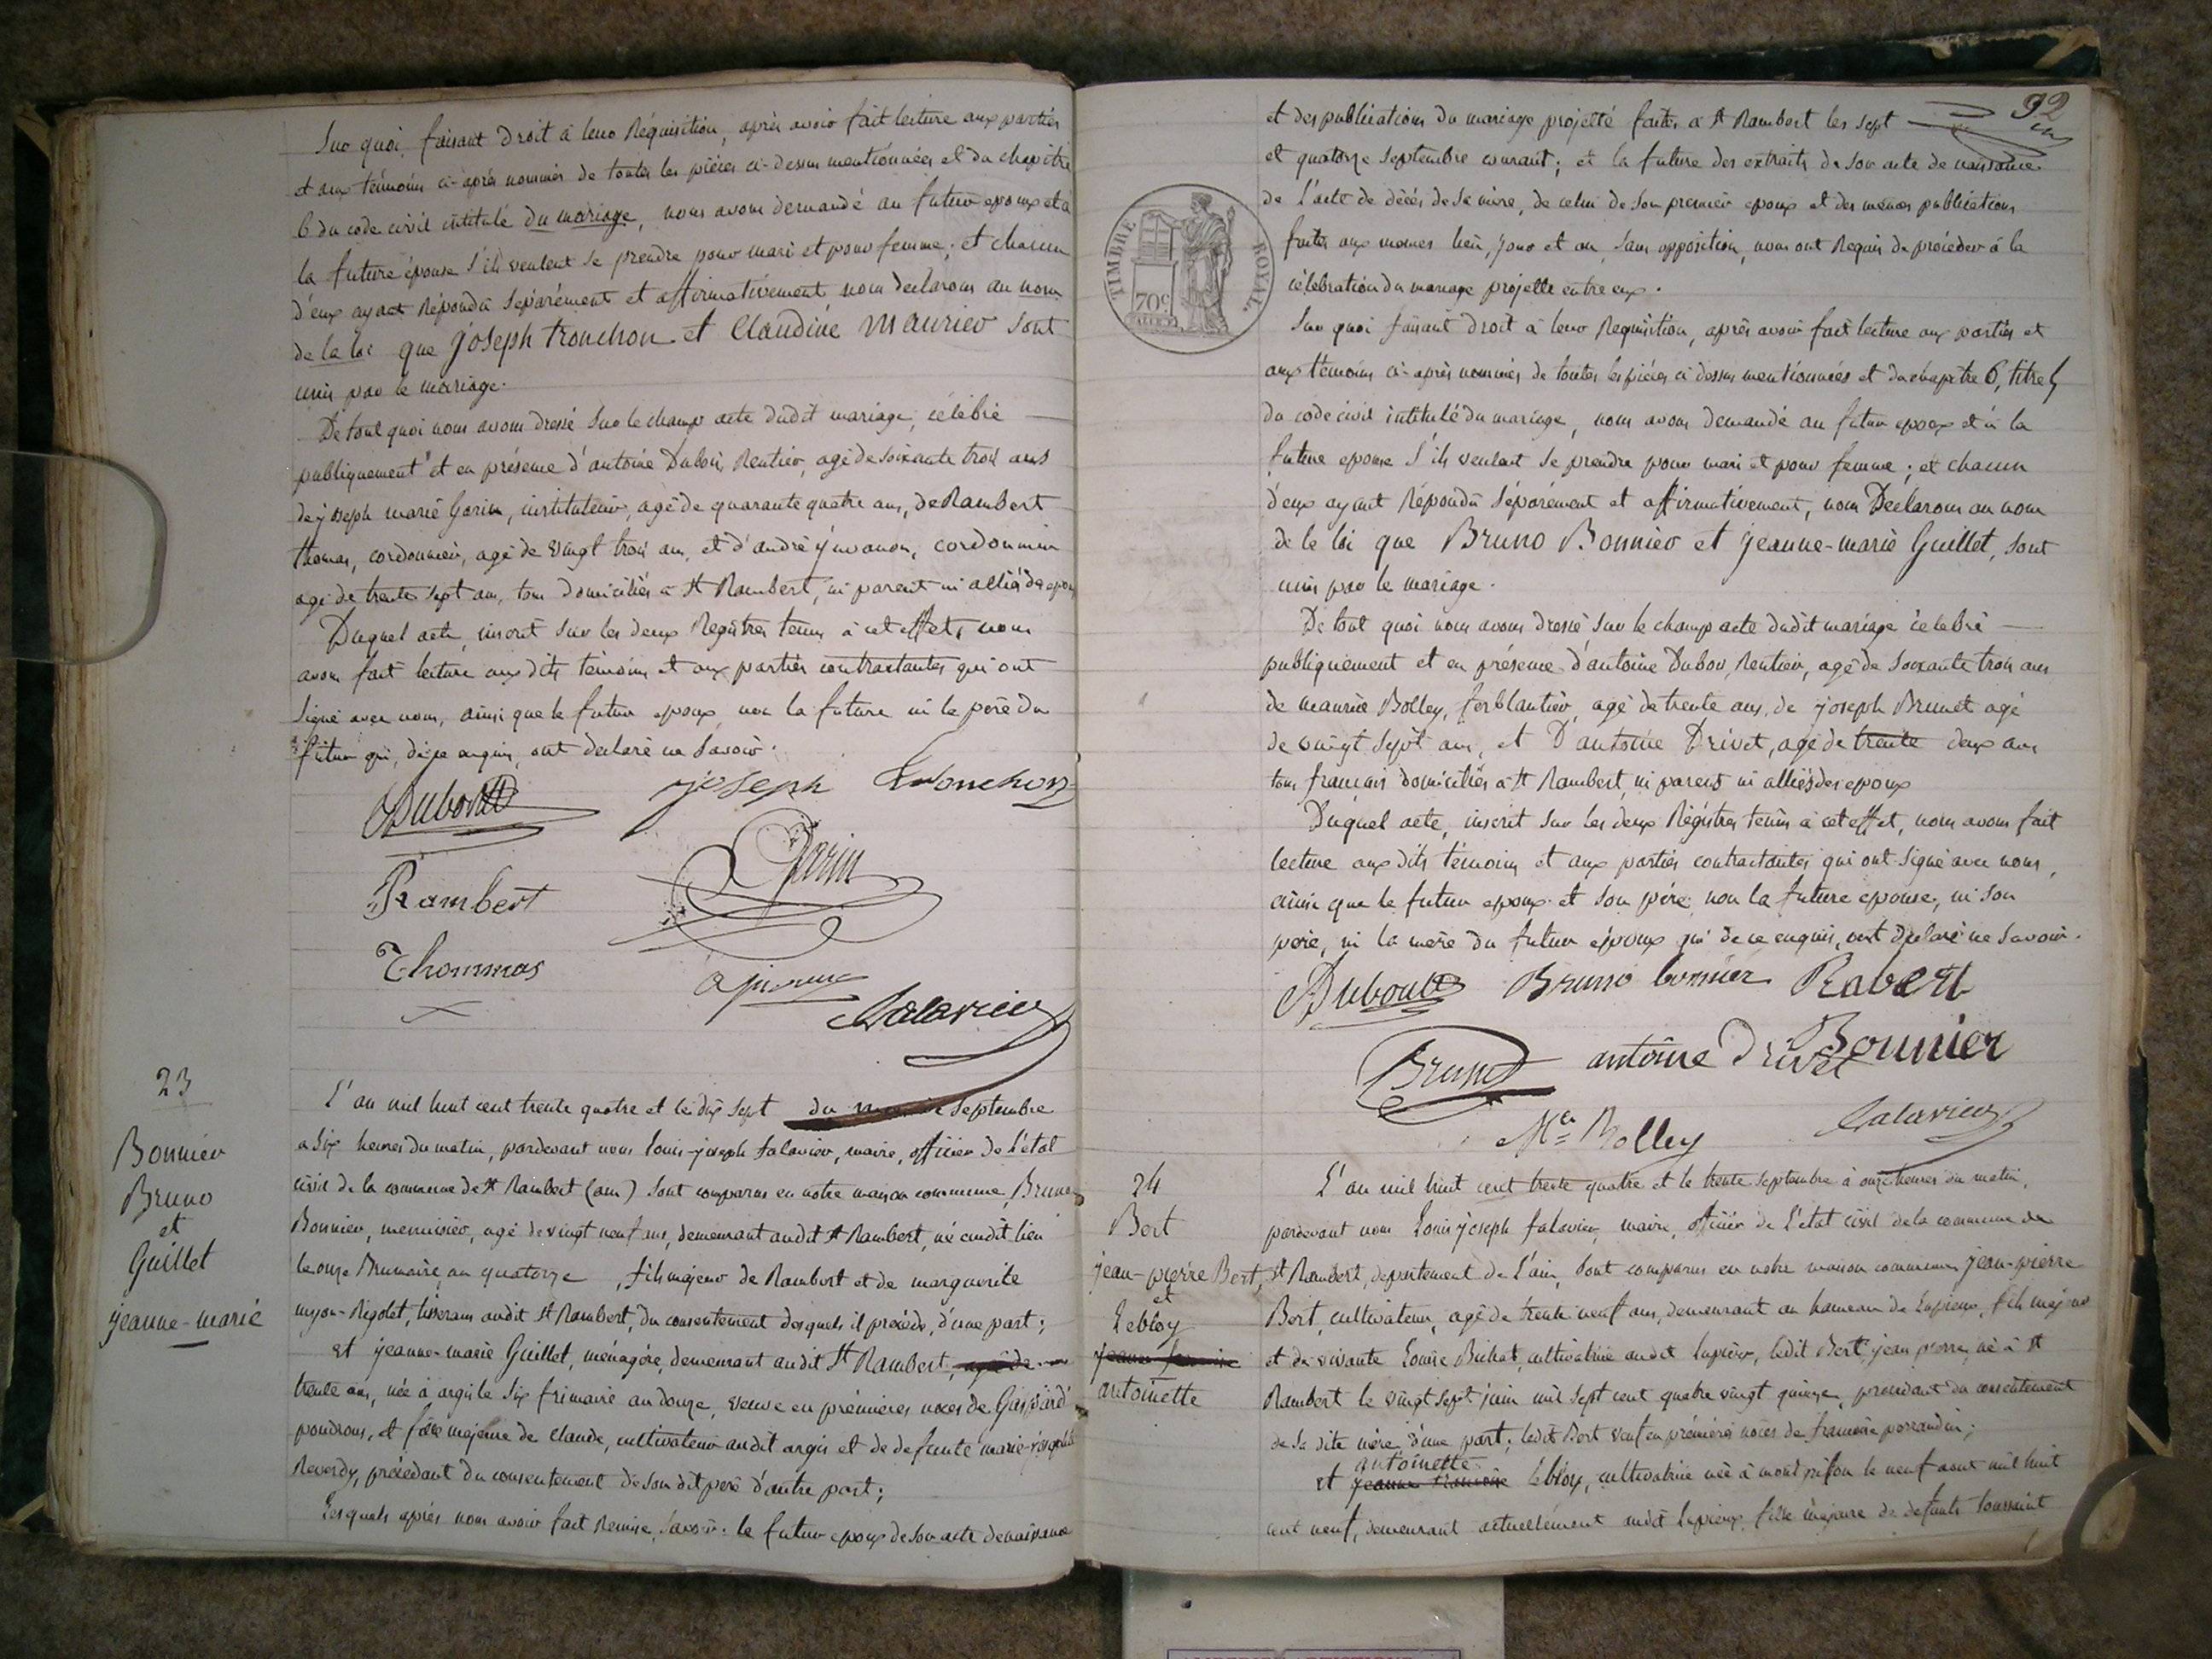 Sur quoi, faisant droit à leur Réquisition, après avoir fait lecture aux parties
et aux témoins ci-après nommés de toutes les pièces ci-dessus mentionnées et du chapitre
6 du code civil intitulé du mariage, nous avons demandé au futur epoux et a
la future épouse s'ils veulent se prendre pour mari et pour femme; et chacun
d'eux ayant Répondu séparément et affirmativement nous declarons au nom
de la loi que joseph tronchon et Claudine Maurier sont
unis par le mariage.
De tout quoi nous avons dressé sur le champ acte dudit mariage, célébré
publiquement et en présence d'antoine Dubois, Rentier, agé de soixante trois ans
de joseph marie Garin, instituteur, agé de quarante quatre ans, de Rambert
thomas, cordonnier, agé de vingt trois ans, et d'andré cordonnier
agé de trente sept ans, tous domiciliés à St Rambert, ni parent ni alliés des epoux
Duquel acte, inscrit sur les deux Registres tenus à cet effet, nous
avons fait lecture aux dits témoins et aux parties contractantes qui ont
signé avec nous, ainsi que le futur epoux, non la future ni le père du
futur qui, de ce enquis, ont declaré ne savoir.
joseph tronchon
Rambert
Garin
Thommas
Falavier
23
Bonnier
Bruno
et
Guillet
jeanne-marie
L'an mil huit cent trente quatre et le dix sept septembre
a six heures du matin, pardevant nous Louis-joseph falavier, maire, officier de l'état
civil de la commune de St Rambert (ain) sont comparus en notre maison commune, Bruno
Bonnier, menuisier, agé de vingt neuf ans, demeurant audit St Rambert, né audit lieu
le onze Brumaire an quatorze, fils majeur de Rambert et de marguerite
Rigolet, tisserans audit St Rambert, du consentement desquels il procède, d'une part;
et jeanne-marie Guillet, ménagère, demeurant audit St Rambert, agée de
trente ans, née à argis le six frimaire an douze, veuve en premières noces de Gaspard
, et fille majeure de Claude, cultivateur audit argis et de defunte marie-josephte
Reverdy, procédant du consentement de son dit père d'autre part;
Lesquels après nous avoir fait Remise, savoir: le futur epoux de son acte de naissance
92
et des publications du mariage projetté faites à St Rambert les sept
et quatorze septembre courant; et la future des extraits de son acte de naissance
de l'acte de décés de sa mère, de celui de son premier epoux et des mêmes publications
faites aux mêmes lieu, jour et an, sans opposition, nous ont Requis de procéder à la
célébration du mariage projetté entre eux.
TIMBRE ROYAL.
70c
Sur quoi faisant droit à leur Requisition, après avoir fait lecture aux parties et
aux témoins ci-après nommés de toutes les pièces ci dessus mentionnées et du chapitre 6, titre 5
du code civil intitulé du mariage, nous avons demandé au futur epoux et à la
future epouse s'ils veulent se prendre pour mari et pour femme; et chacun
d'eux ayant Répondu séparément et affirmativement, nous Declarons au nom
de la loi que Bruno Bonnier et jeanne-marie Guillet, sont
unis par le mariage.
De tout quoi nous avons dressé sur le champ acte dudit mariage célébré
publiquement et en présence d'antoine Rentier, agé de soixante trois ans
de maurice Bolley, ferblantier, agé de trente ans, de joseph Brunet agé
de vingt sept ans, et D'antoine Drivet, agé de trente deux ans
tous français domiciliés à St Rambert, ni parens ni alliés des epoux
Duquel acte, inscrit sur les deux Régistres tenus à cet effet, nous avons fait
lecture aux dits témoins et aux parties contractantes qui ont signé avec nous,
ainsi que le futur epoux et son père, non la future epouse, ni son
père, ni la mère du futur époux qui de ce enquis, ont declaré ne savoir.
Bruno bonnier Rabert
Brunet antoine Drivet Bonnier
Mce Bolley Falavier
24
Bert
jean-pierre Bert,
et
Lebloy
antoinette
L'an mil huit cent trente quatre et le trente septembre à onze heures du matin,
pardevant nous Louis joseph falavier, maire, officier de l'etat civil de la commune de
St Rambert, departement de l'ain, sont comparus en notre maison commune jean-pierre
Bert, cultivateur, agé de trente neuf ans, demeurant au hameau de fils majeur
et de vivante Louise Bichat, cultivatrice audit ledit Bert jean pierre né à St
Rambert le vingt sept juin mil sept cent quatre vingt quinze, procédant du consentement
de sa dite mère d'une part; ledit Bert veuf en premières noces de francoise
antoinette
et jeanne francoise Lebloy, cultivatrice née à le neuf aout mil huit
cent neuf, demeurant actuellement audit fille majeure de defunts toussaint